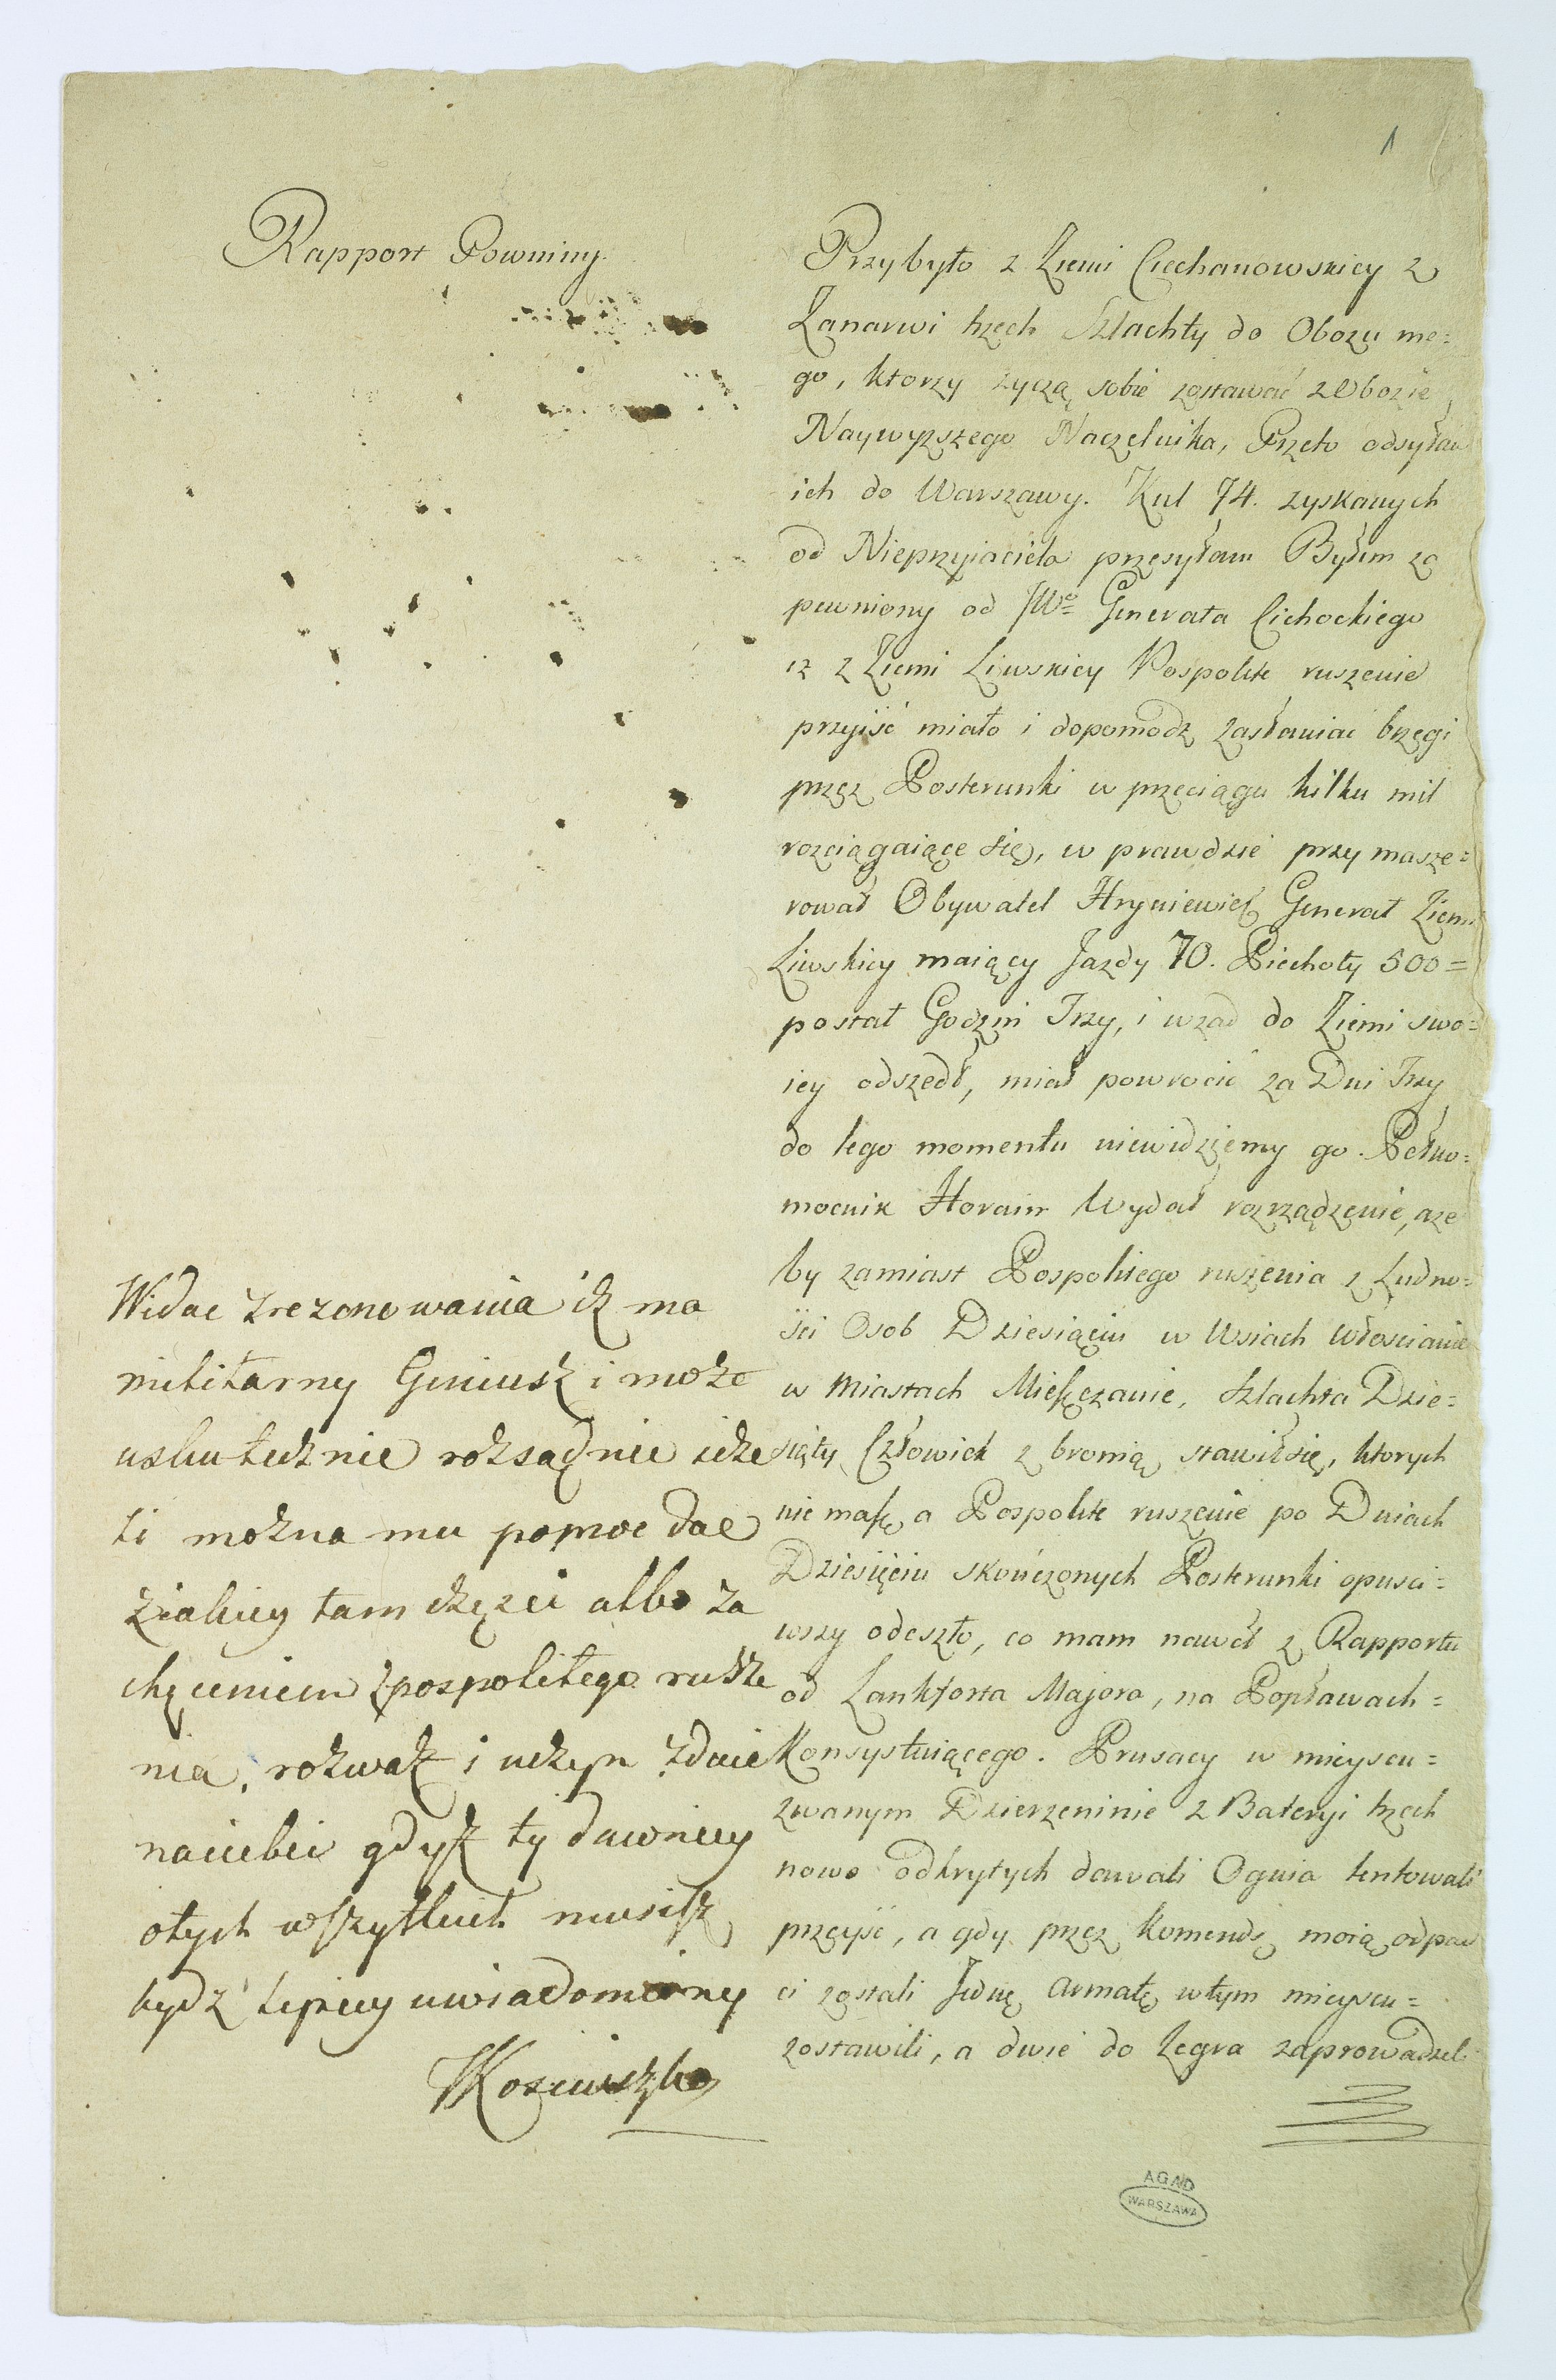 1
Rapport Powinny.
Przybyło z Ziemi Ciechanowskiey z
Zanarwi trzech Szlachty do Obozu me=
go, ktorzy zyczą sobie zostawać w Obozie
Naywyzszego Naczelnika, Przeto odsyłam
ich do Warszawy. Kul 74. zyskanych
od Nieprzyiaciela przesyłam Byłem za
pewniony od JWo= Generała Cichockiego
iz z Ziemi Liwskiey Pospolite ruszenie
przyiść miało i dopomodz zasłaniać brzegi
przez Posterunki w przeciągu kilku mil
rozciągaiące się, w prawdzie przymasze=
rował Obywatel Hryniewicz Generał Ziemi
Liwskiey maiący Jazdy 70. Piechoty 500=
postał Godzin Trzy, i wzad do Ziemi swo=
iey odszedł, miał powrocić za Dni Trzy
do tego momentu niewidziemy go. Pełno=
mocnik Horain Wydał rozrządzenie, aze
by zamiast Pospolitego ruszenia z Ludno=
ści Osob Dziesiąciu w Wsiach Włościanie
w Miastach Mieszczanie, Szlachta Dzie=
siąty Człowiek z bronią stawił się, ktorych
nie masz a Pospolite ruszenie po Dniach
Dziesięciu skończonych Posterunki opusci=
wszy odeszło, co mam nawet z Rapportu
od Lankforta Majora, na Popławach=
Konsystuiącego. Prusacy w mieyscu=
zwanym Dzierzeninie z Bateryi trzech
nowo odkrytych dawali Ognia tentowali
przeyść, a gdy przez Komendę moią odpar
ci zostali Jednę Armatę w tym mieyscu=
zostawili, a dwie do Zegra zaprowadzili
Widac zrezonowania iż ma
militarny Geniusz i może
uskutecznie rozsądnie ieże
li można mu pomoc dac
ziakiey tam częzci albo za
chęceniem zpospolitego rusze
nia, rozważ i uczyn zdaie
naciebie gdyż ty dawniey
otych wszytkich musisz
bydz lepiey uwiadomiony
TKosciuszko
AGAD
WARSZAWA